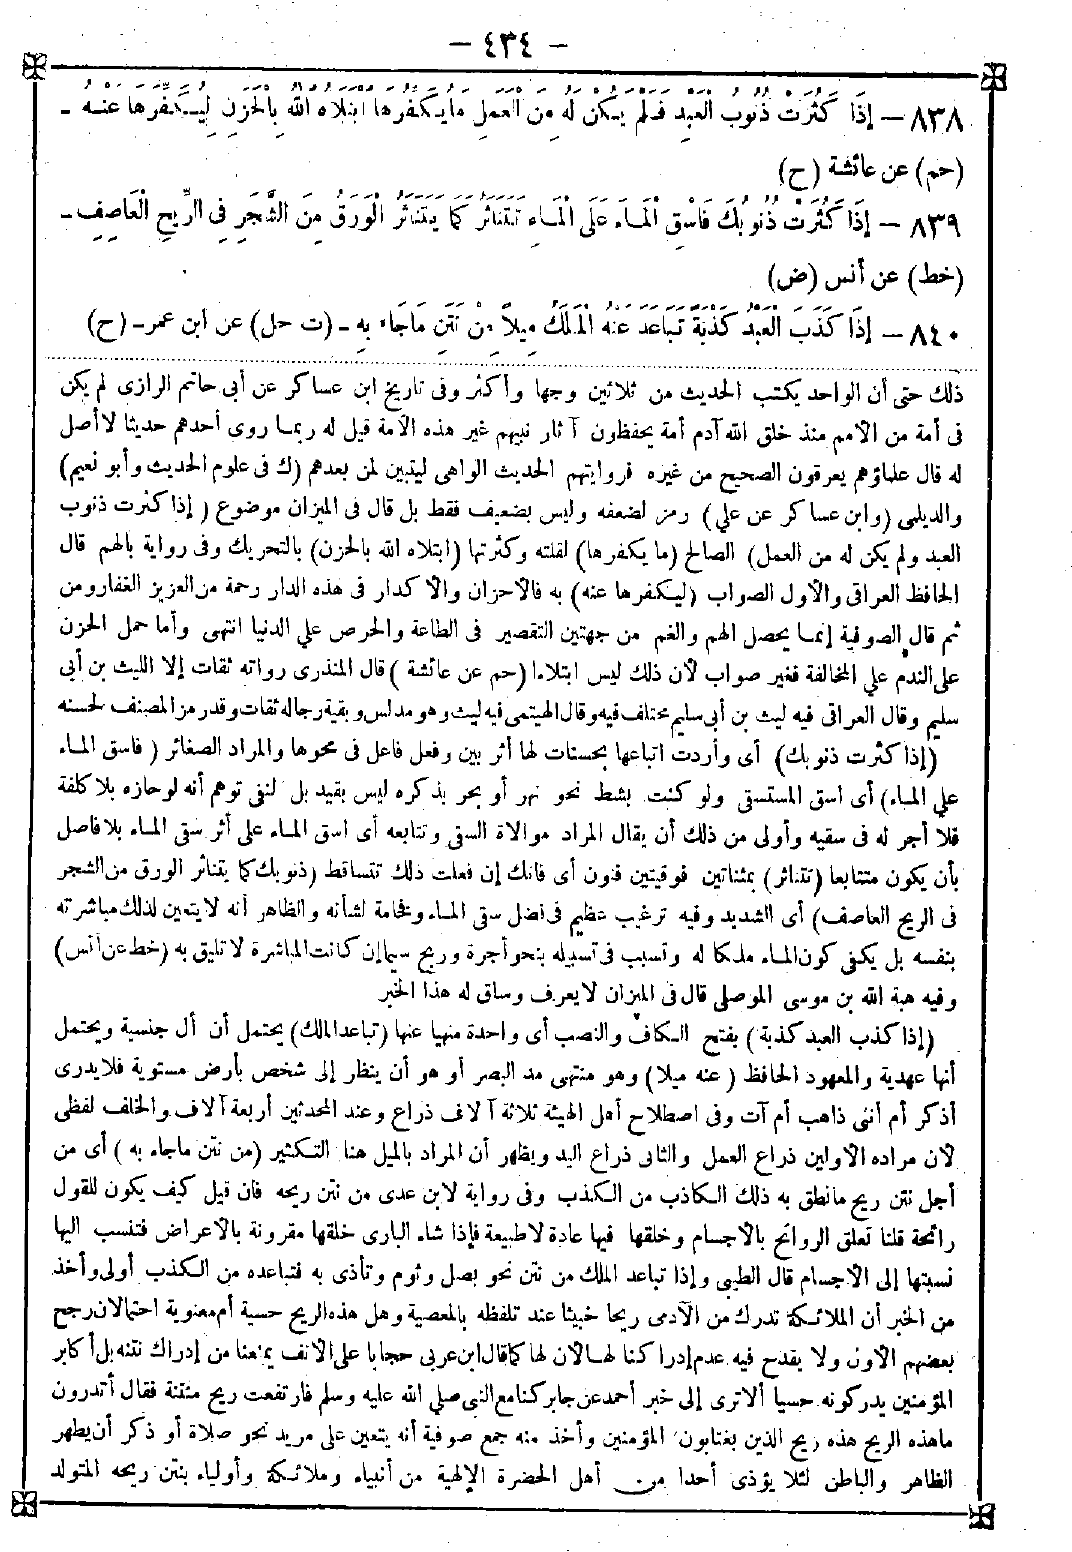 - ٤٣٤ -
٨٣٨ - إِذَا كَثُرَتْ ذُنُوبُ الْعَبْدِ فَلَمْ يَكُنْ لَهُ مِنَ الْعَمَلِ مَا يُكَفِّرُهَا ابْتَلَاهُ اللهُ بِالْحَزَنِ لِيُكَفِّرَهَا عَنْهُ -
(حم) عن عائشة (ح)
٨٣٩ - إِذَا كَثُرَتْ ذُنُوبُكَ فَاسْقِ الْمَاءَ عَلَى الْمَاءِ تَتَنَاثَرْ كَمَا يَتَنَاثَرُ الْوَرَقُ مِنَ الشَّجَرِ فِى الرِّيحِ الْعَاصِفِ -
(خط) عن أنس (ض)
٨٤٠ - إِذَا كَذَبَ الْعَبْدُ كَذْبَةً تَبَاعَدَ عَنْهُ الْمَلَكُ مِيلاً مِنْ نَتَنِ مَا جَاءَ بِهِ - (ت حل) عن ابن عمر - (ح)
ذلك حتى أن الواحد يكتب الحديث من ثلاثين وجها وأكثر وفى تاريخ ابن عساكر عن أبى حاتم الرازى لم يكن
فى أمة من الأمم منذ خلق الله آدم أمة يحفظون آثار نبيهم غير هذه الأمة قيل له ربما روى أحدهم حديثا لا أصل
له قال علماؤهم يعرفون الصحيح من غيره فروايتهم الحديث الواهى ليتبين لمن بعدهم (ك فى علوم الحديث وأبو نعيم)
والديلمى (وابن عساكر عن علي) رمز لضعفه وليس بضعيف فقط بل قال فى الميزان موضوع (إذا كثرت ذنوب
العبد ولم يكن له من العمل) الصالح (ما يكفرها) لقلته وكثرتها (ابتلاه الله بالحزن) بالتحريك وفى رواية بالهم قال
الحافظ العراقى والأول الصواب (ليكفرها عنه) به فالأحزان والأكدار فى هذه الدار رحمة من العزيز الغفار ومن
ثم قال الصوفية إنما يحصل الهم والغم من جهتين التقصير فى الطاعة والحرص علي الدنيا انتهى وأما حمل الحزن
على الندم علي المخالفة فغير صواب لأن ذلك ليس ابتلاءا (حم عن عائشة) قال المنذرى رواته ثقات إلا الليث بن أبى
سليم وقال العراقى فيه ليث بن أبى سليم مختلف فيه وقال الهيتمى فيه ليث وهو مدلس وبقية رجاله ثقات وقد رمز المصنف لحسنه
(إذا كثرت ذنوبك) أى وأردت اتباعها بحسنات لها أثر بين وفعل فاعل فى محوها والمراد الصغائر (فاسق الماء
علي الماء) أى اسق المستسقى ولو كنت بشط نحو نهر أو بحر بذكره ليس بقيد بل لنفى توهم أنه لو حازه بلا كلفة
فلا أجر له فى سقيه وأولى من ذلك أن يقال المراد موالاة السقى وتتابعه أى اسق الماء على أثر سقى الماء بلا فاصل
بأن يكون متتابعا (تتناثر) بمثناتين فوقيتين فنون أى فانك إن فعلت ذلك تتساقط (ذنوبك كما يتناثر الورق من الشجر
فى الريح العاصف) أى الشديد وفيه ترغيب عظيم فى فضل سقى الماء وفخامة لشأنه والظاهر أنه لا يتعين لذلك مباشرته
بنفسه بل يكفى كون الماء ملكا له وتسبب فى تسبيله بنحو أجرة وريح سيما إن كانت المباشرة لا تليق به (خط عن أنس)
وفيه هبة الله بن موسى الموصلى قال فى الميزان لا يعرف وساق له هذا الخبر
(إذا كذب العبد كذبة) بفتح الكاف والنصب أى واحدة منهيا عنها (تباعد الملك) يحتمل أن أل جنسية ويحتمل
أنها عهدية والمعهود الحافظ (عنه ميلا) وهو منتهى مد البصر أو هو أن ينظر إلى شخص بأرض مستوية فلا يدرى
أذكر أم أنثى ذاهب أم آت وفى اصطلاح أهل الهيئة ثلاثة آلاف ذراع وعند المحدثين أربعة آلاف والخلف لفظى
لأن مراده الأولين ذراع العمل والثانى ذراع اليد ويظهر أن المراد بالميل هنا التكثير (من نتن ماجاء به) أى من
أجل نتن ريح ما نطق به ذلك الكاذب من الكذب وفى رواية لابن عدى من نتن ريحه فان قيل كيف يكون للقول
رائحة قلنا تعلق الروائح بالأجسام وخلقها فيها عادة لا طبيعة فإذا شاء البارى خلقها مقرونة بالأعراض فتنسب اليها
نسبتها إلى الأجسام قال الطيبى وإذا تباعد الملك من نتن نحو بصل وثوم وتأذى به فتباعده من الكذب أولى وأخذ
من الخبر أن الملائكة تدرك من الآدمى ريحا خبيثا عند تلفظه بالمعصية وهل هذه الريح حسية أم معنوية احتمالان رجح
بعضهم الأول ولا يقدح فيه عدم إدراكنا لها لأن لها كما قال ابن عربى حجابا على الأنف يمنعنا من إدراك نتنه بل أكابر
المؤمنين يدركونه حسيا ألا ترى إلى خبر أحمد عن جابر كنا مع النبى صلي الله عليه وسلم فارتفعت ريح منتنة فقال أتدرون
ماهذه الريح هذه ريح الذين يغتابون المؤمنين وأخذ منه جمع صوفية أنه يتعين على مريد نحو صلاة أو ذكر أن يطهر
الظاهر والباطن لئلا يؤذى أحدا من أهل الحضرة الإلهية من أنبياء وملائكة وأولياء بنتن ريحه المتولد